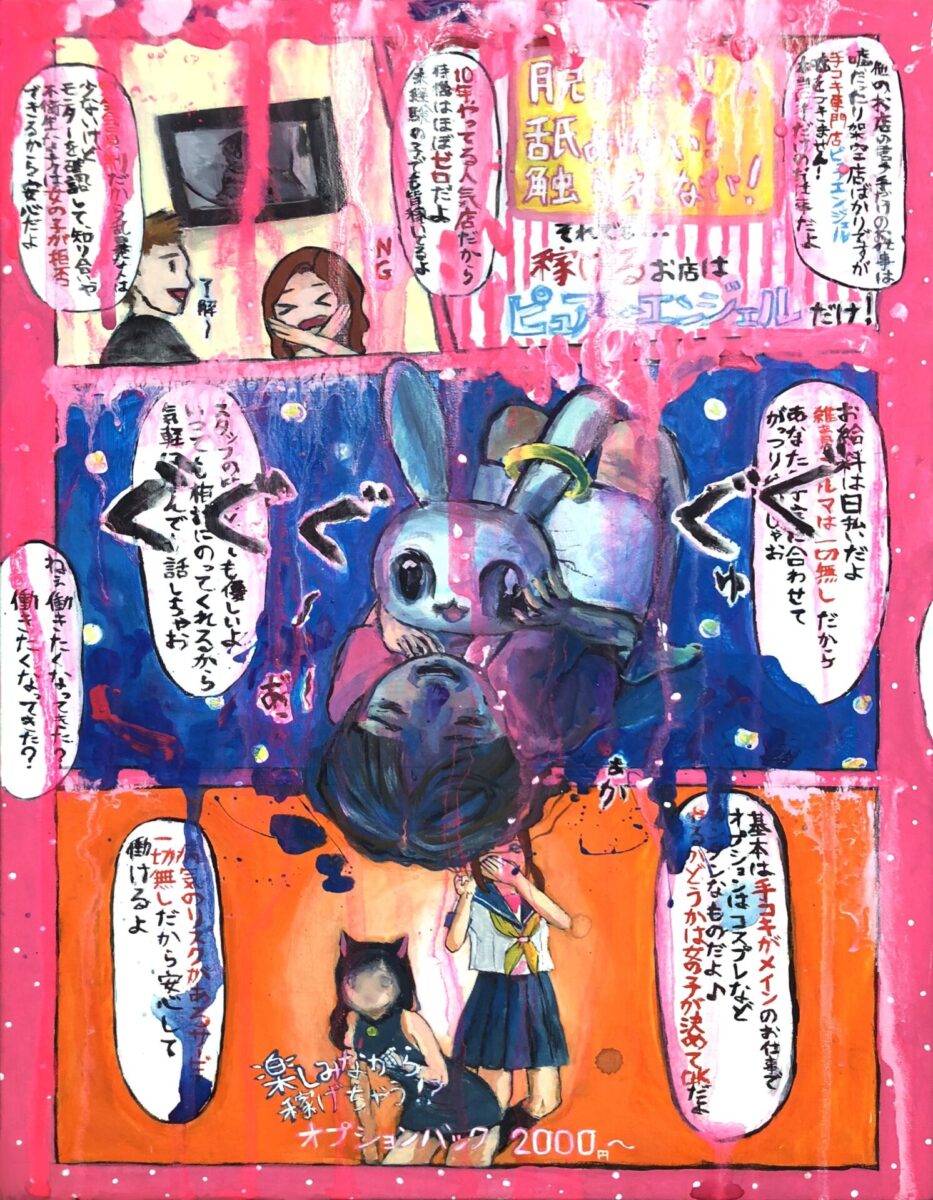 嘘だったり架空店ばかりですが
手コキ専門店ピュアエンジェル
嘘をつきません!
だけのお仕事だよ
脱
舐 ない!
触 れない!
それでも…
稼げるお店は
ピュア エンジェルだけ!
10年やってる人気店だから
待機はほぼゼロだよ
未経験の子でも皆稼いでるよ
NG
少ないけど
モニターを確認して知り合いや
不衛生な は女の子が拒否
できるから安心だよ
了解~
お給料は日払いだよ
雑費 ルマは一切無しだから
あなた に合わせて
がっつり しちゃお
ぐぐ
ぐぐぐ
ぢゅ
スタッフの も優しいよ
いつでも相談にのってくれるから
気軽に んで 話しちゃお
おっ
まが
ねぇ働きたくなってきた?
働きたくなってきた?
基本は手コキがメインのお仕事で
オプションはコスプレなど
ンプルなものだよ♪
やるかどうかは女の子が決めてOKだよ
病気のリスクがあるサービ
一切無しだから安心して
働けるよ
楽しみながら
稼げちゃう!?
オプションバック 2000円~